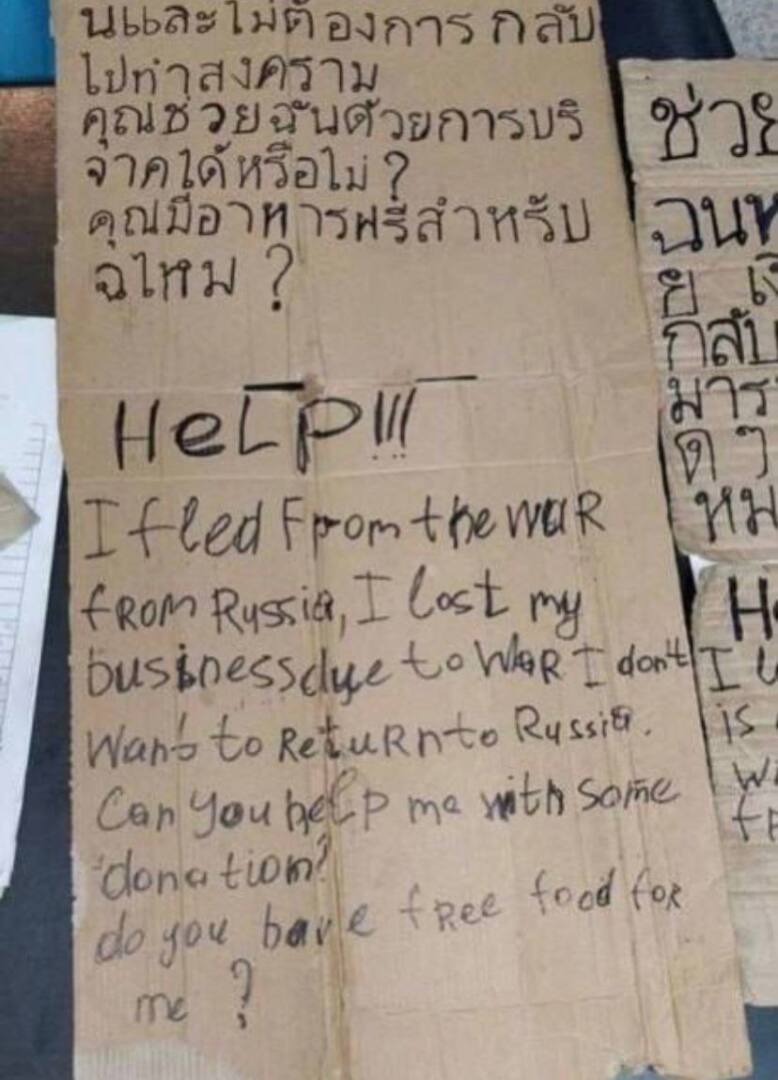 นและไม่ต้องการ กลับ
ไปทำสงคราม
คุณช่วยฉันด้วยการบริ
จาคได้หรือไม่ ?
คุณมีอาหารฟรีสำหรับ
ฉไหม ?
HeLp!!!
I fled From the waR
fRom Russia, I lost my
business due to WaR I don't
Want to RetuRn to Russia.
Can you help me with some
donation?
do you have fRee food foR
me ?
ช่วย
ฉันห
ย เ
กลับ
มาร
ด ๆ
หม
He
I l
is
wi
fR